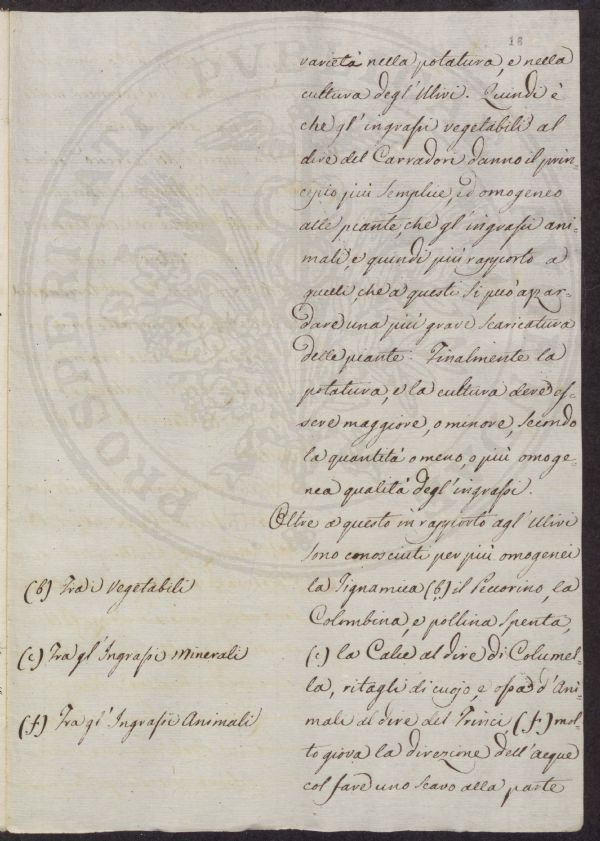 18
varietà nella potatura, e nella
cultura degl'Ulivi. Quindi è
che gl'ingrassi vegetabili al
dire del Carradori danno il prin-
cipio più semplice, ed omogeneo
alle piante, che gl'ingrassi ani-
mali, e quindi più rapporto a
quelli che a questi si può azzar-
dare una più grave scaricatura
delle piante. Finalmente la
potatura, e la cultura deve es-
sere maggiore, o minore, secondo
la quantità o meno, o più omoge-
nea qualità degl'ingrassi.
Oltre a questo in rapporto agl'Ulivi
sono conosciuti per più omogenei
(b) Tra i Vegetabili
la (b) il Pecorino, la
Colombina, e pollina spenta,
(c) Tra gl'Ingrassi Minerali
(c) la Calce al dire di Columel-
la, ritagli di cuojo, e ossa d'Ani-
(f) Tra gl'Ingrassi Animali
male al dire del Trinci (f) mol-
to giova la direzione dell'acque
col fare uno scavo alla parte
PROSPERITATI PVB